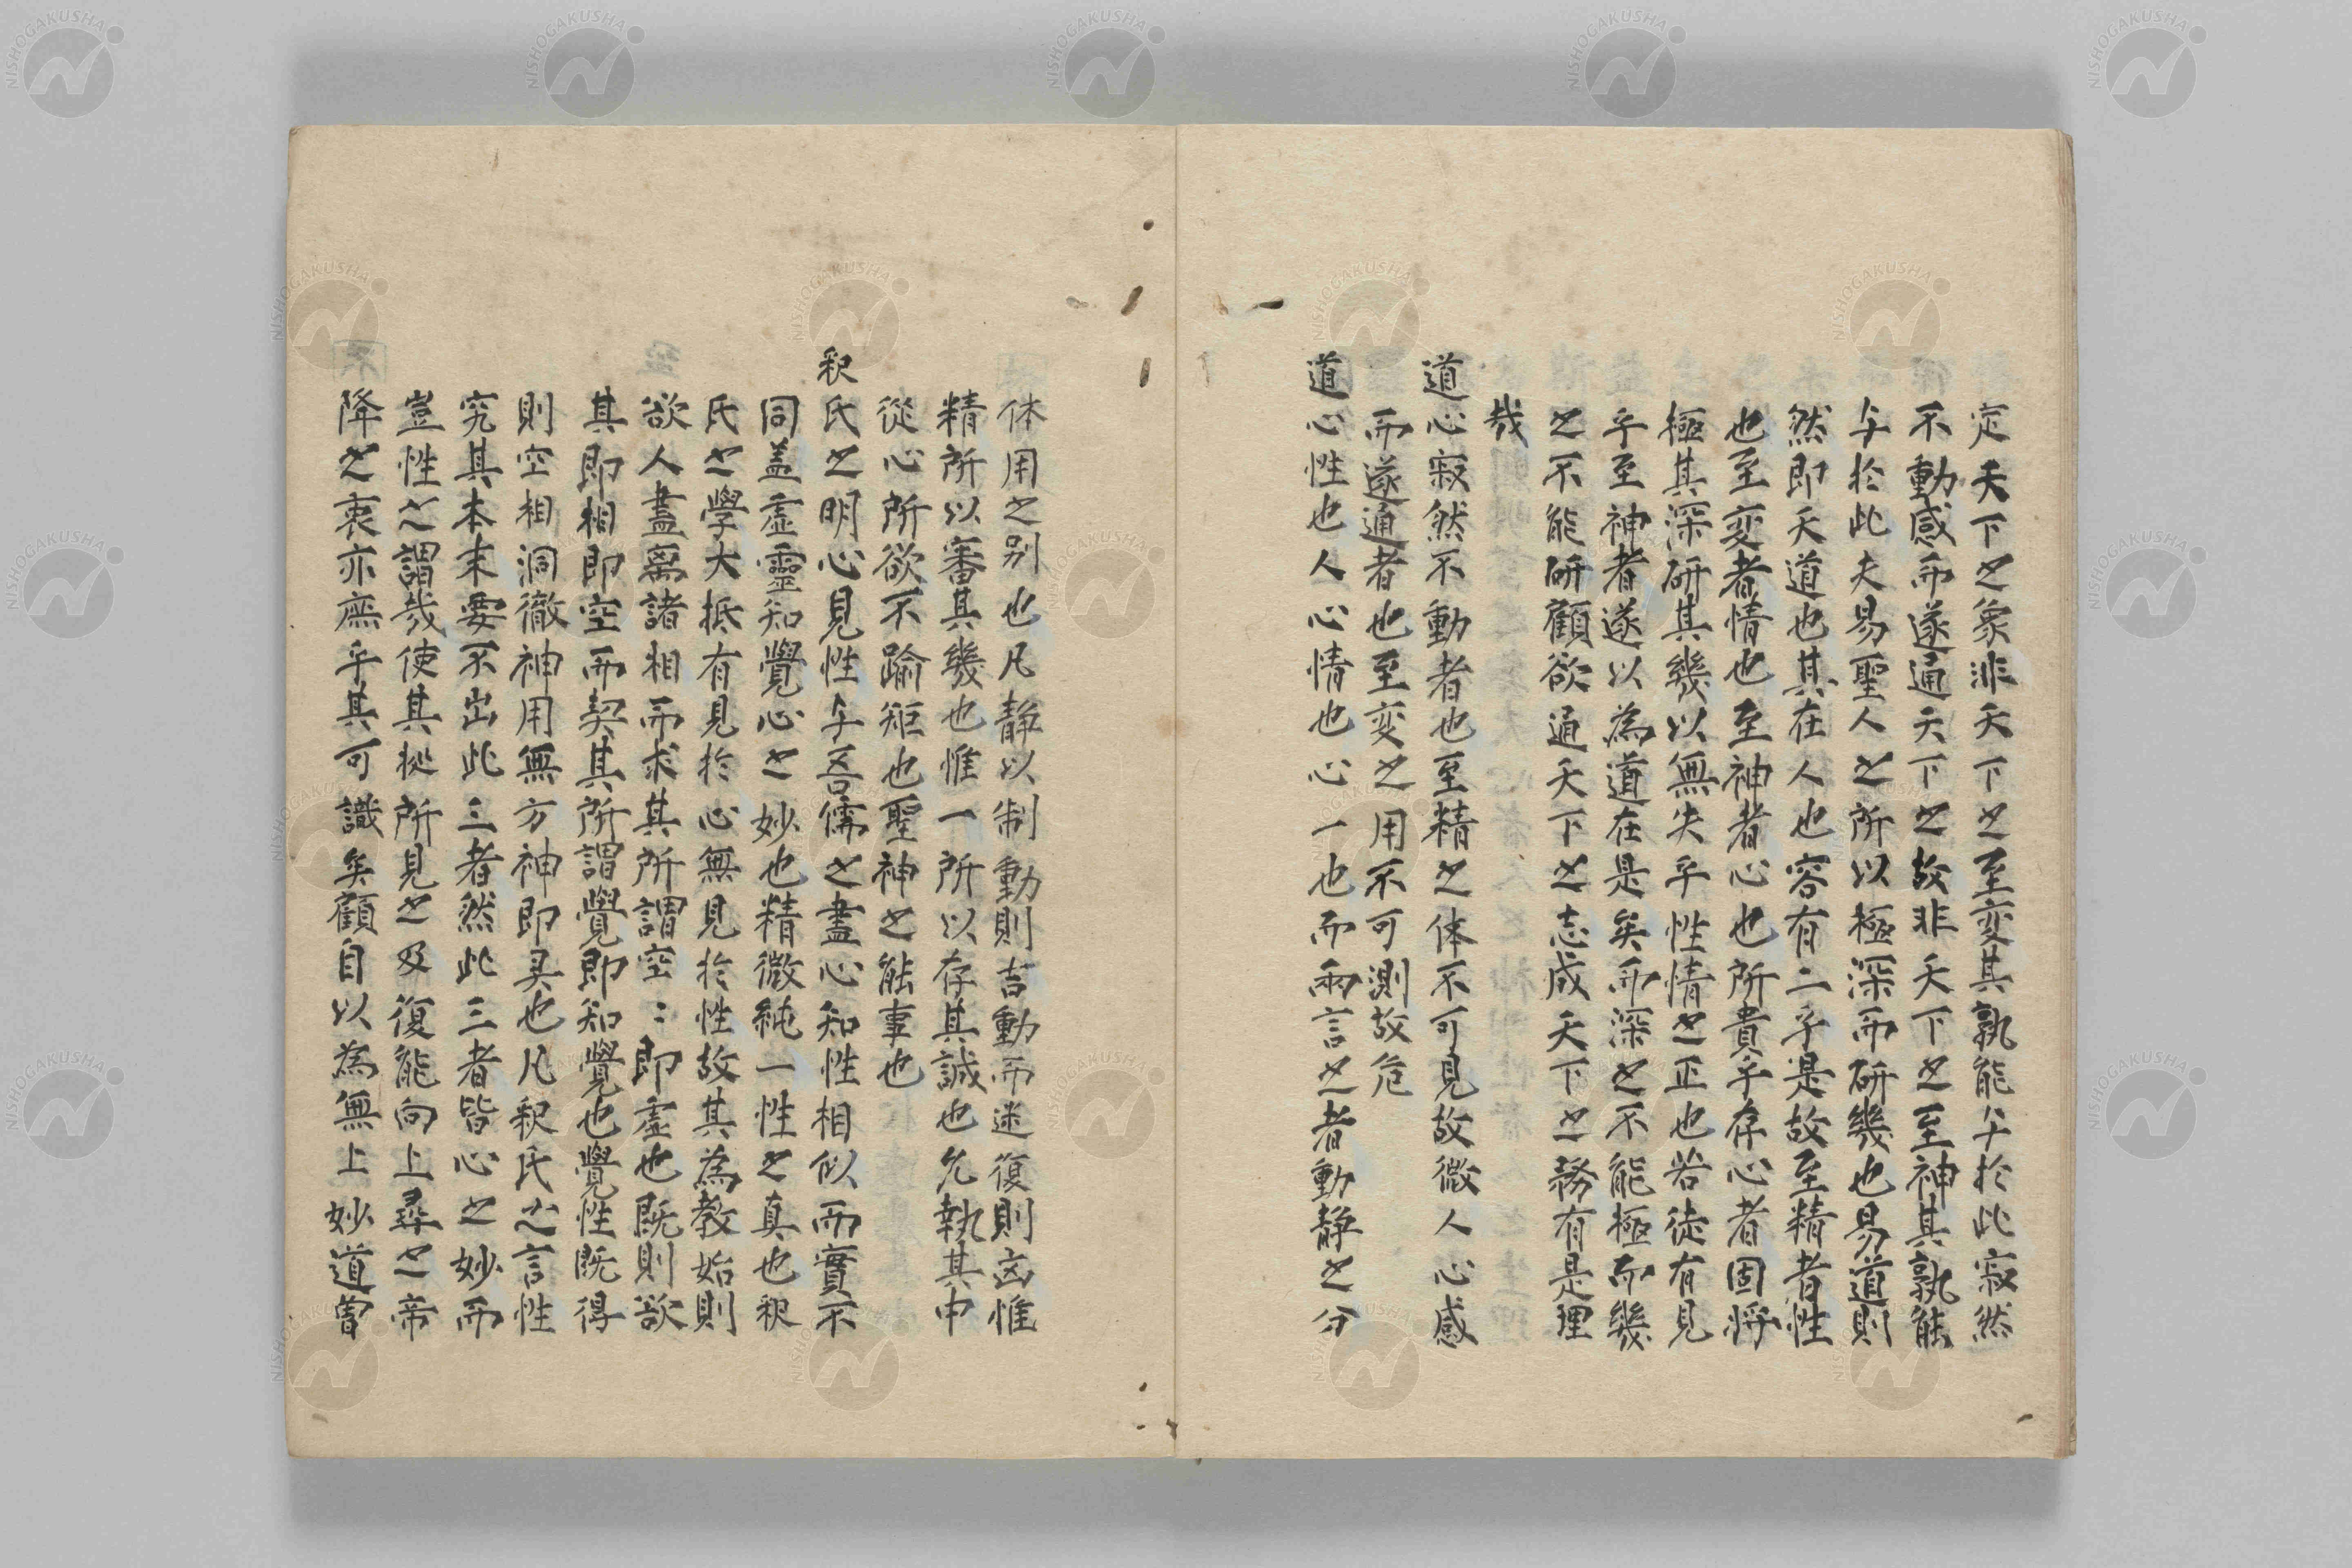 定天下之象非天下之至変其孰能与於此寂然
不動感而遂通天下之故非天下之至神其孰能
与於此夫易聖人之所以極深而研幾也易道則
然即天道也其在人也容有二乎是故至精者性
也至変者情也至神者心也所貴乎存心者固将
極其深研其幾以無失乎性情之正也若徒有見
乎至神者遂以為道在是矣而深之不能極而幾
之不能研顧欲通天下之志成天下之務有是理
哉
道心寂然不動者也至精之体不可見故微人心感
而遂通者也至変之用不可測故危
道心性也人心情也心一也而両言之者動静之分
体用之別也凡静以制動則吉動而迷復則凶惟
精所以審其幾也惟一所以存其誠也允執其中
從心所欲不踰矩也聖神之能事也
釈氏之明心見性与吾儒之盡心知性相似而實不
同盖虚靈知覺心之妙也精微純一性之真也釈
氏之學大抵有見於心無見於性故其為教始則
欲人盡离諸相而求其所謂空〻即虚也既則欲
其即相即空而契其所謂覺即知覺也覺性既得
則空相洞徹神用無方神即灵也凡釈氏之言性
究其本末要不出此三者然此三者皆心之妙而
豈性之謂哉使其拠所見之及復能向上尋之帝
降之衷亦庶乎其可識矣顧自以為無上妙道曽
NISHOGAKUSHA